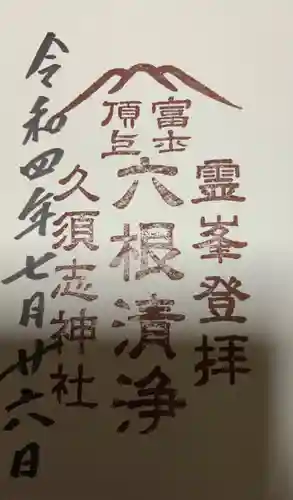 霊峯登拝
富士
頂上
六根清浄
久須志神社
令和四年七月廿六日